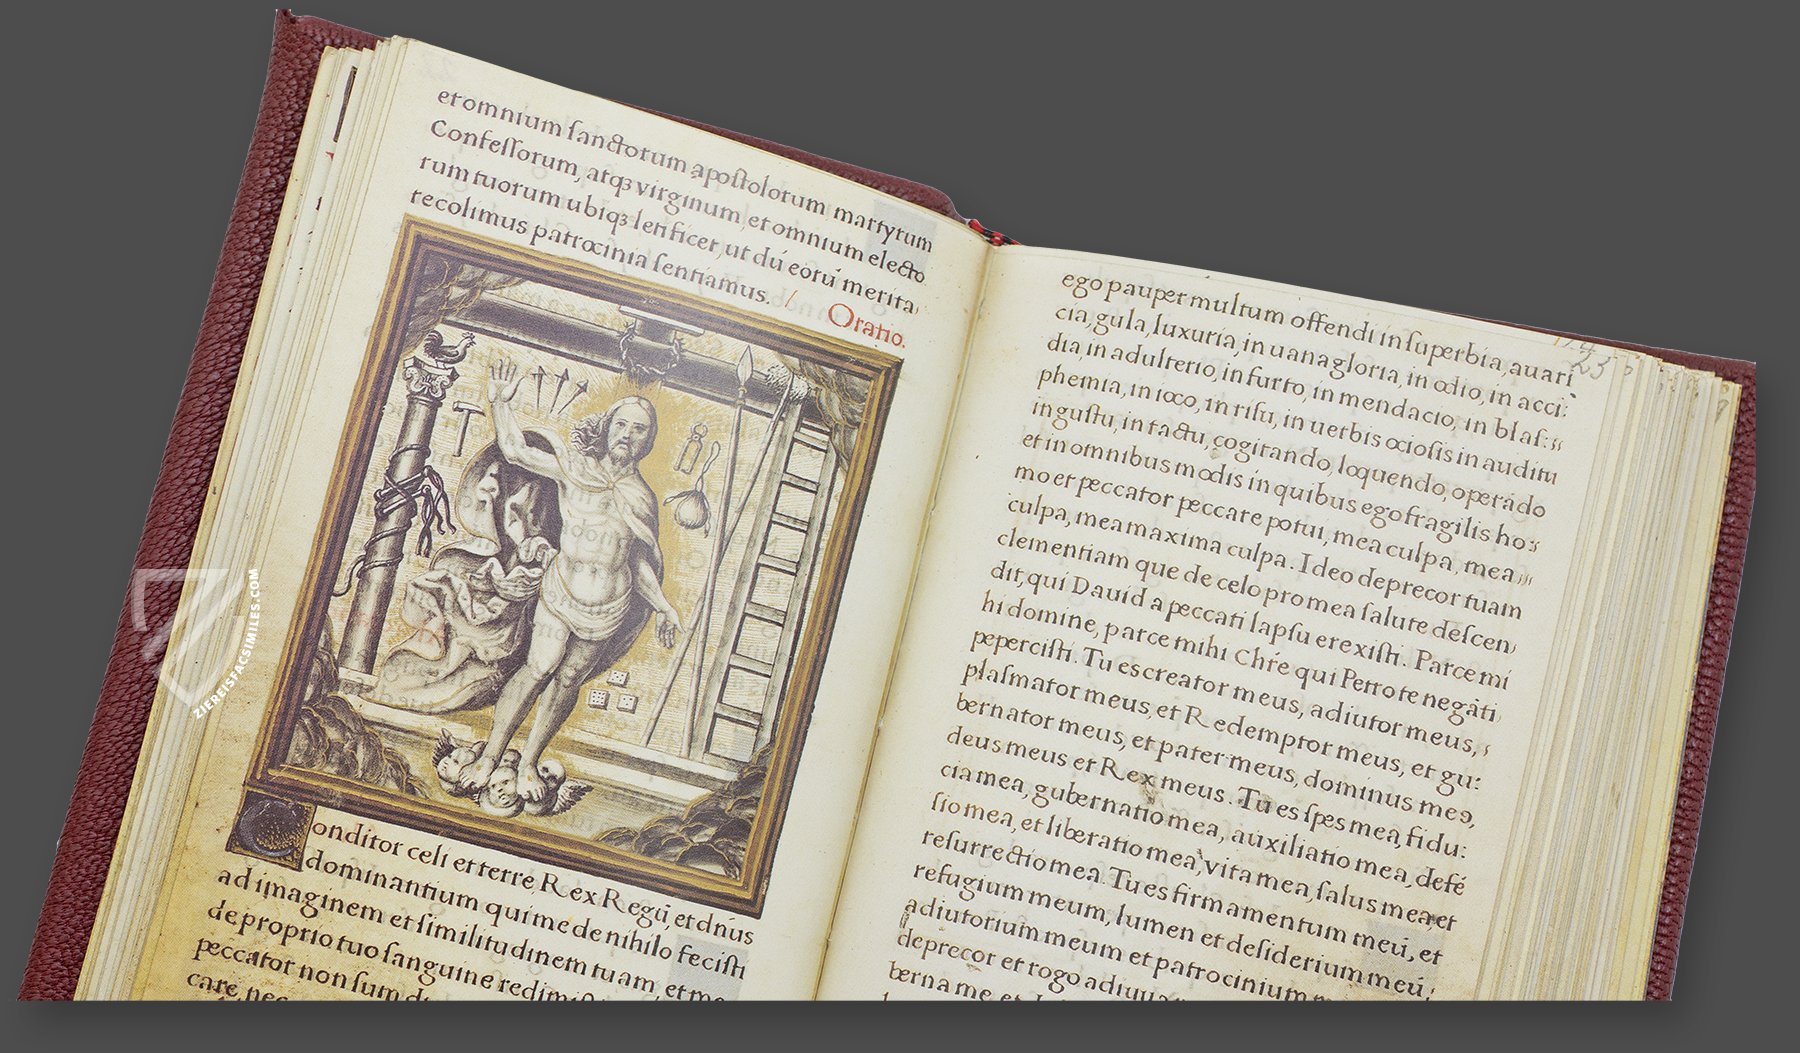 et omnium sanctorum apostolorum martyrum
Confessorum, atqꝫ virginum, et omnium electo
rum tuorum ubiqꝫ letificet, ut dū eorū merita
recolimus patrocinia sentiamus. Oratio.
Conditor celi et terrę, Rex Regū, et dn̄us
dominantium qui me de nihilo fecisti
ad imaginem et similitudinem tuam, et me
de proprio tuo sanguine redimisti
peccator non sum di
care, nec
ego pauper multum offendi in superbia, auari
cia, gula, luxuria, in uana gloria, in odio, in acci:
dia, in adulterio, in furto, in mendacio, in blas:
phemia, in ioco, in risu, in uerbis ociosis in auditu
in gustu, in tactu, cogitando, loquendo, operādo
et in omnibus modis in quibus ego fragilis ho:
mo et peccator peccare potui, mea culpa, mea
culpa, mea maxima culpa. Ideo deprecor tuam
clementiam que de celo pro mea salute descen
dit, qui Dauid a peccati lapsu erexisti. Parce mi
hi domine, parce mihi Chr̄e qui Petro te negāti
pepercisti. Tu es creator meus, adiutor meus,
plasmator meus, et Redemptor meus, et gu:
bernator meus, et pater meus, dominus meꝯ,
deus meus et Rex meus. Tu es spes mea, fidu:
cia mea, gubernatio mea, auxiliatio mea, defē
sio mea, et liberatio mea, vita mea, salus mea et
resurrectio mea. Tu es firmamentum meū, et
refugium meum, lumen et desiderium meū,
adiutorium meum et patrocinium
deprecor et rogo adiuua
berna me, et
ZIEREISFACSIMILES.COM